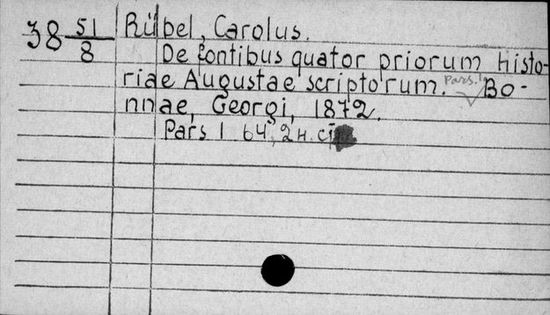 38 51/8 Rübel, Carolus.
De fontibus quator priorum histo-
riae Augustae scriptorum. Pars. I Bo-
nnae, Georgi, 1872.
Pars I 64, 2 н.